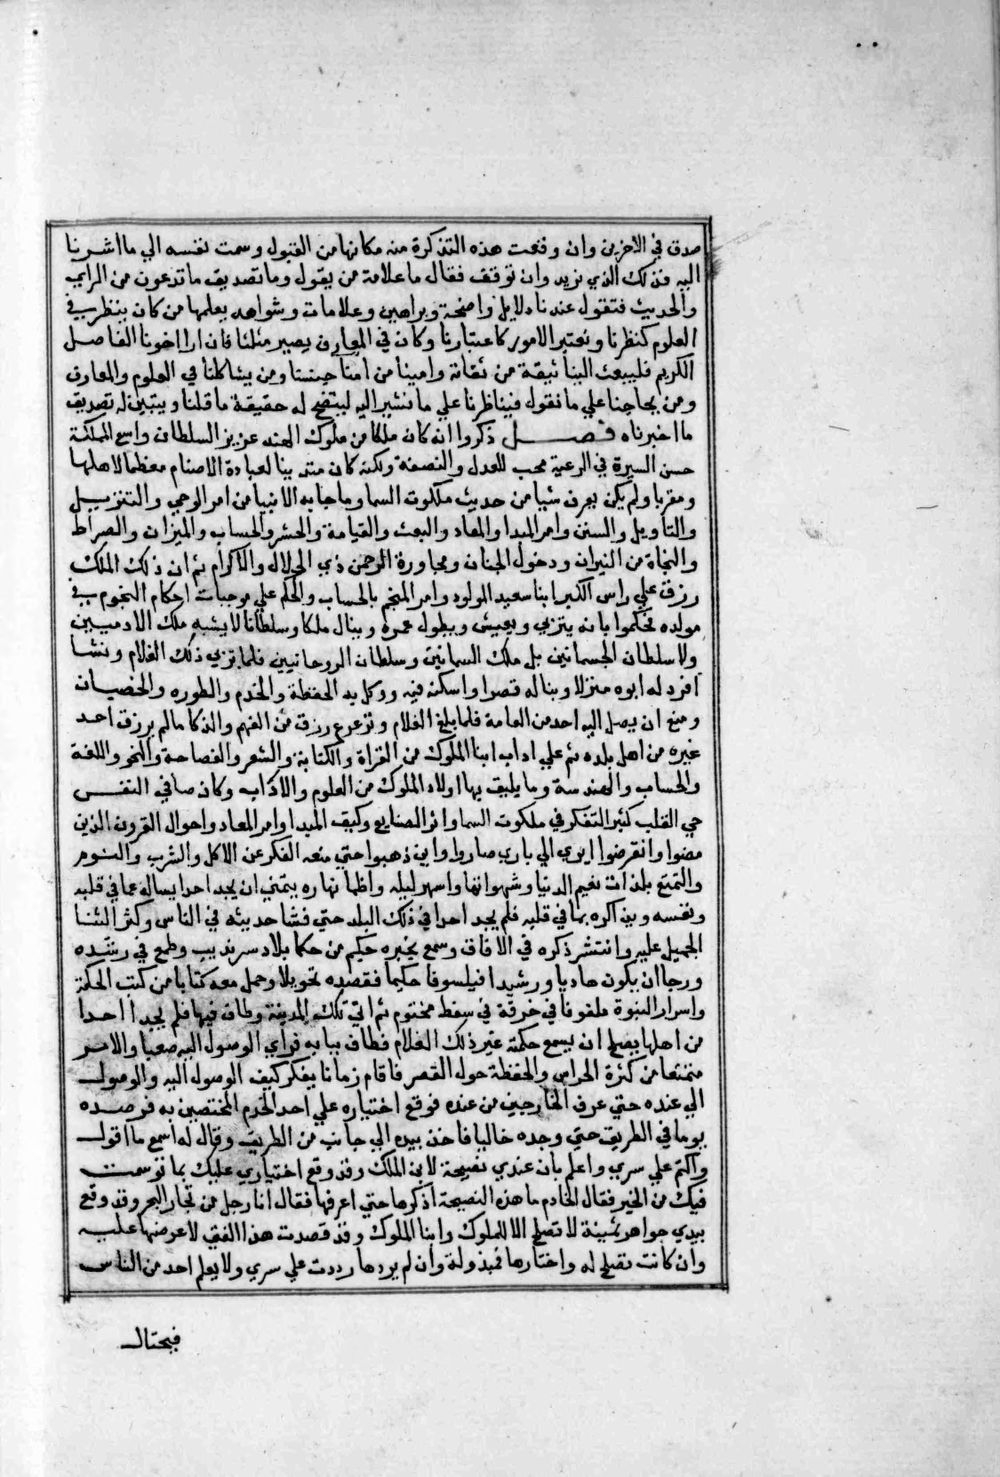 صدق في الاخرين وان وقعت هذه التذكرة منه مكانها من القبول وسمت نفسه الي ما اشرنا
اليه فذلك الذي نريد وان توقف فقال ما علامة من يقول وما تصديق ما تدعون من الراي
والحديث فتقول عندنا دلايل واضحة وبراهين وعلامات وشواهد يعلمها من كان ينظر في
العلوم كنظرنا ويعتبر الامور كاعتبارنا وكان في المعارف يصير مثلنا فان اراد اخونا الفاضل
الكريم فليبعث الينا ثيقة من ثقاته وامينا من امنا جنسنا ومن يشاكلنا في العلوم والمعارف
ومن يحاجنا علي ما نقول فيناظرنا علي ما نشير اليه ليتضح له حقيقة ما قلنا ويتبين له تصديق
ما اخبرناه فصل ذكروا انه كان ملكا من ملوك الهند عزيز السلطان واسع المملكة
حسن السيرة في الرعية محب للعدل والنصفة ولكنه كان متدينا لعبادة الاصنام معظما لاهلها
ومقربا ولم يكن يعرف شيا من حديث ملكوت السما وما جا به الانبيا من امر الوحي والتنزيل
والتاويل والسنن وامر المبدا والمعاد والبعث والقيامة والحشر والحساب والميزان والصراط
والنجاة من النيران ودخول الجنان ومجاورة الرحمن ذي الجلال والاكرام ثم ان ذلك الملك
رزق علي راس الكبر ابنا سعيد المولود وامر المنجم بالحساب والحكم علي موجبات احكام النجوم في
مولده فحكموا بانه يتربي ويعيش ويطول عمره وينال ملكا وسلطانا لا يشبه ملك الادميين
ولا سلطان الجسمانين بل ملك السمائين وسلطان الروحانيين فلما تربي ذلك الغلام ونشا
افرد له ابوه منزلا وبنا له قصرا واسكنه فيه ووكل به الحفظة والخدم والطوره والخصيان
ومنع ان يصل اليه احد من العامة فلما بلغ الغلام وترعرع رزق من الفهم والذكا ما لم يرزق احد
غيره من اهل بلده ثم علي اداب ابنا الملوك من القراة والكتابة والشعر والفصاحة والنحو واللغة
والحساب والهندسة وما يليق بها اولاد الملوك من العلوم والاداب وكان صافي النفس
حي القلب كثير التفكر في ملكوت السما واثر الصنايع وكيف المبدا وامر المعاد واحوال القرون الذين
مضوا وانقرضوا اين الي باري صاروا واين ذهبوا حتي منعه الفكر عن الاكل والشرب والنوم
والتمتع بلذات نعيم الدنيا وشهواتها واسهر ليله واظما نهاره يتمني ان يجد احدا يساله عما في قلبه
ونفسه وبين اكره بما في قلبه فلم يجد احدا في ذلك البلد حتي فشا حديثه في الناس وكثر الثنا
الجميل عليه وانتشر ذكره في الافاق وسمع بخبره حكيم من حكما بلاد سرنديب وطمع في رشده
ورجا ان يكون هاديا ورشيدا فيلسوفا حكيما فقصده تحويلا وحمل معه كتابا من كتب الحكمة
واسرار النبوة ملفوفا في خرقة في سفط مختوم ثم اتي تلك المدينة وطاف فيها فلم يجدا احدا
من اهلها يصلح ان يسمع حكمته غير ذلك الغلام فطاف ببابه فراي الوصول اليه صعبا والامر
متمنعا من كثرة الحراس والحفظة حول القصر فاقام زمانا يفكر كيف الوصول اليه والوصول
الي عنده حتي عرف الخارجين من عنده فوقع اختياره علي احد الخدم المختصين به فرصده
يوما في الطريق حتي وجده خاليا فاخذ بيده الي جانب من الطريق وقال له اسمع ما اقول
واكتم علي سري واعلم بان عندي نصيحة لابن الملك وقد وقع اختياري عليك بما توسمت
فيك من الخير فقال الخادم ما هذه النصيحة اذكرها حتي اعرفها فقال انا رجل من تجار البحر وقد وقع
بيدي جواهر ثمينة لا تصلح الا للملوك وابنا الملوك وقد قصدت هذا الفتي لاعرضها عليه
وان كانت تصلح له واختارها فمبذولة وان لم يردها رددت علي سري ولا يعلم احد من الناس
فيحتال